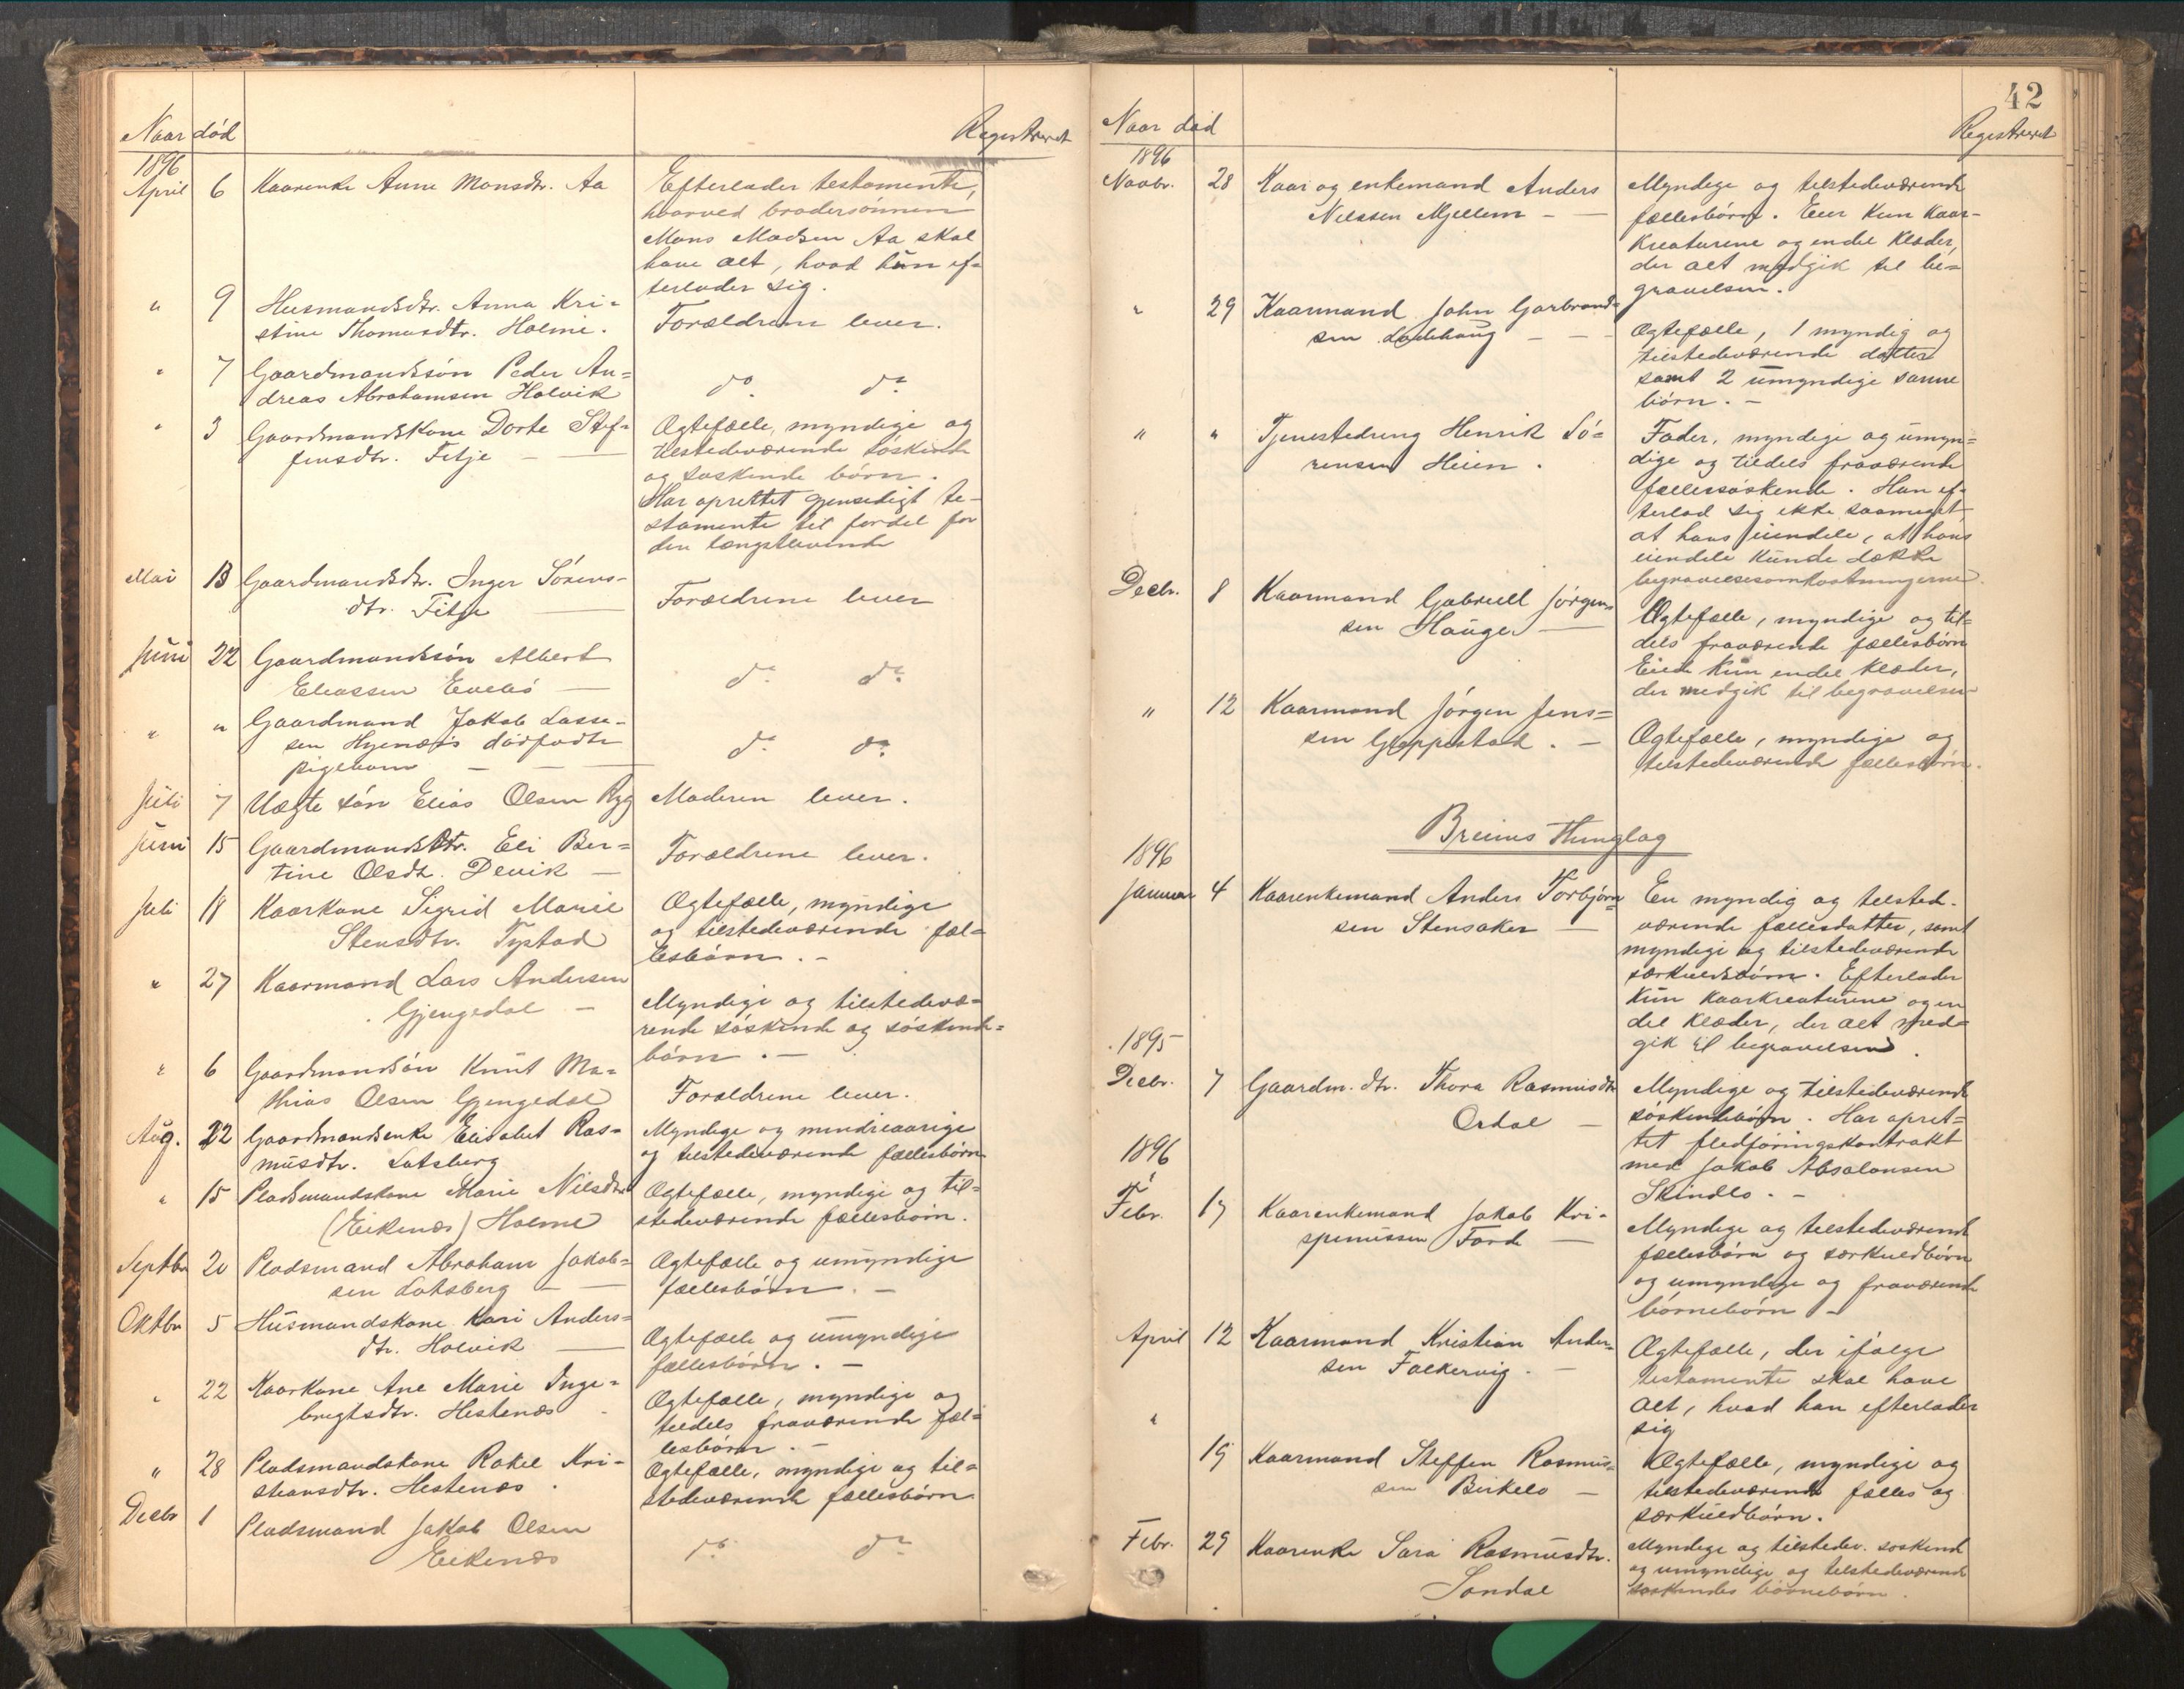 Naar død
Registreret
1896
April 6 Kaarenke Anne Monsdtr. Aa
Efterlader testamente,
hvorved brodersønnen
Mons Madsen Aa skal
have alt, hvad hun ef-
terlader sig.
" 9 Husmandsdtr. Anna Kri-
stine Thomasdtr. Holme.
Forældrene lever.
" 7 Gaardmandssøn Peder An-
dreas Abrahamsen Holvik
do. do.
" 3 Gaardmandskone Dorte Stef-
fensdtr. Fitje —
Ægtefælle, myndige og
tilstedeværende søskende
og søskende børn.
Har oprettet gjensidigt te-
stamente til fordel for
den længstlevende
Mai 13 Gaardmandsdtr. Inger Sørens-
dtr. Fitje —
Forældrene lever
Juni 22 Gaardmandssøn Albert
Eliassen Evebø —
do. do.
" " Gaardmand Jakob Lasse-
sen Hyenæs dødfødte
pigebarn — —
do. do.
Juli 7 Uægte søn Elias Olsen Ryg
Moderen lever.
Juni 15 Gaardmandsdtr. Eli Ber-
tine Olsdtr. Devik —
Forældrene lever.
Juli 18 Kaarkone Sigrid Marie
Stensdtr. Tystad
Ægtefælle, myndige
og tilstedeværende fæl-
lesbørn. -
" 27 Kaarmand Lars Andersen
Gjengedal —
Myndige og tilstedevæ-
rende søskende og søskende-
børn. —
" 6 Gaardmandsøn Knut Ma-
thias Olsen Gjengedal
Forældrene lever.
Aug. 22 Gaardmandsenke Elisabet Ras-
musdtr. Lotsberg
Myndige og mindreaarige
og tilstedeværende fællesbørn
" 15 Pladsmandskone Marie Nilsdtr
(Eikenæs) Holme
Ægtefælle, myndige og til-
stedeværende fællesbørn.
Septbr 20 Pladsmand Abraham Jakob-
sen Lotsberg —
Ægtefælle og umyndige
fællesbørn. -
Oktbr 5 Husmandskone Kari Anders-
dtr. Holvik —
Ægtefælle og umyndige
fællesbørn. —
" 22 Kaarkone Ane Marie Inge-
brigtsdtr. Hestenæs -
Ægtefælle, myndige og
tildels fraværende fæl-
lesbørn. —
" 28 Pladsmandskone Rakel Kri-
stiansdtr. Hestenæs.
Ægtefælle, myndige og til-
stedeværende fællesbørn
Decbr 1 Pladsmand Jakob Olsen
Eikenæs
do. do.
42
Naar død
Registreret
1896
Novbr. 28 Kaar og enkemand Anders
Nilssen Mjellem — —
Myndige og tilstedeværende
fællesbørn. Eier kun kaar-
kreaturene og endel klæder,
der alt medgik til be-
gravelsen.
" 29 Kaarmand John Garbrand-
sen Ladehaug — —
Ægtefælle, 1 myndig og
tilstedeværende datter
samt 2 umyndige sønne
børn. —
" " Tjenestedreng Henrik Sø-
rensen Heien.
Fader, myndige og umyn-
dige og tildels fraværende
fællessøskende. Han ef-
terlod sig ikke saameget
at hans eiendele, at hans
eiendele kunde dække
begravelsesomkostningerne.
Decbr. 8 Kaarmand Gabriell Jørgen-
sen Hauge —
Ægtefælle, myndige og til-
dels fraværende fællesbørn
Eiede kun endel klæder,
der medgik til begravelsen
" 12 Kaarmand Jørgen Jens-
sen Gloppestad. —
Ægtefælle, myndige og
tilstedeværende fællesbørn.
Breims thinglag
1896
Januar 4 Kaarenkemand Anders Torbjørn-
sen Stensaker —
En myndig og tilsted-
værende fællesdatter, samt
myndige og tilstedeværende
særkuldsbørn. Efterlader
kun kaarkreaturene og en
del klæder, der alt med-
gik til begravelsen.
1895
Decbr. 7 Gaardm. dtr. Thora Rasmusdtr
Ordal —
Myndige og tilstedeværende
søskenbørn. Har opret-
tet fledføringskontrakt
med Jakob Absalonsen
Skindlo. -
1896
Febr. 17 Kaarenkemand Jakob Kri-
spinussen Førde —
Myndige og tilstedeværende
fællesbørn og særkuldbørn
og umyndige og fraværende
børnebørn —
April 12 Kaarmand Kristian Ander-
sen Falkevig. —
Ægtefælle, der ifølge
testamente skal have
alt, hvad han efterlader
sig
" 19 Kaarmand Steffen Rasmus-
sen Birkelo —
Ægtefælle, myndige og
tilstedeværende fælles og
særkuldbørn.
Febr. 29 Kaarenke Sara Rasmusdtr.
Sandal
Myndige og tilstedev. søskende
og umyndige og tilstedeværende
søskendes børnebørn.